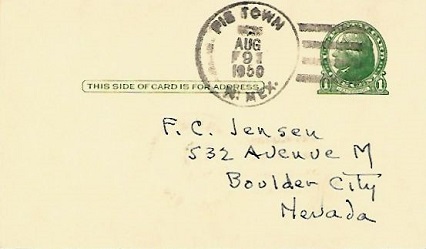 PIE TOWN
AUG
1950
N. MEX.
1 1
THIS SIDE OF CARD IS FOR ADDRESS
F. C. Jensen
532 Avenue M
Boulder City
Nevada